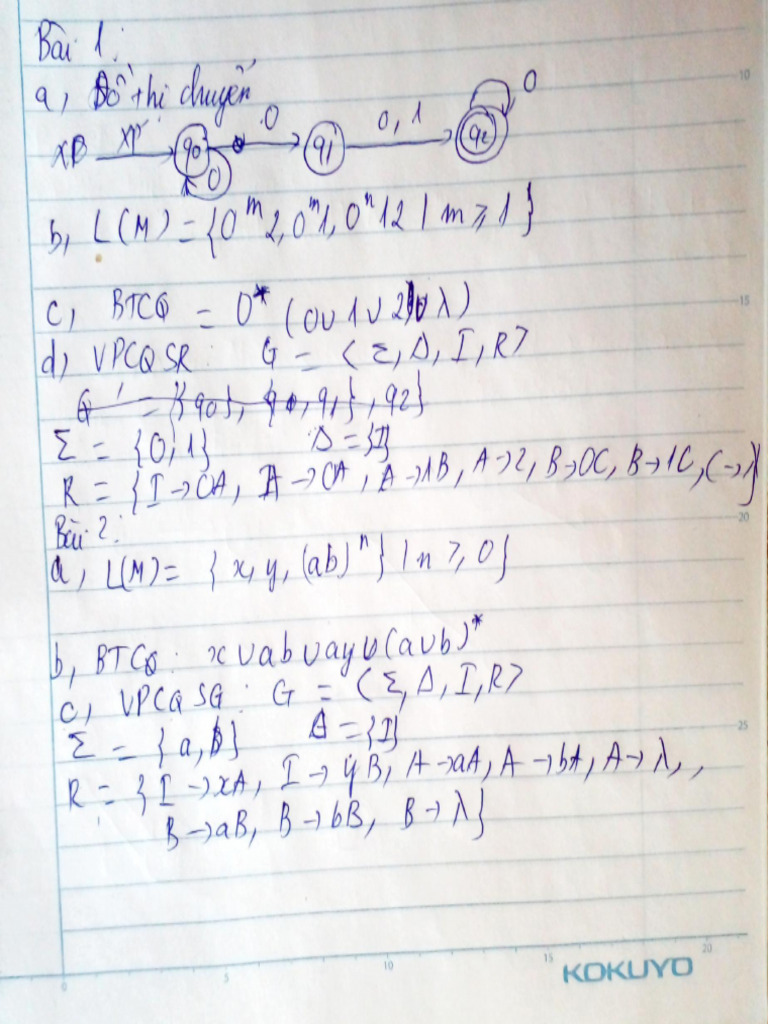 Bài 1:
a, Đồ thị chuyển
XP q0 0 0 q1 0, 1 q2 0
b, L(M) = {0^m 2, 0^m 1, 0^n 12 | m ≥ 1}
c, BTCQ = 0* (0∪1∪2∪λ)
d, VPCQSR: G = <Σ, Δ, I, R>
= {q0}, q1}, q2}
Σ = {0, 1} Δ = {I}
R = {I → 0A, A → 0A, A → 1B, A → 2, B → 0C, B → 1C, C → λ}
Bài 2:
a, L(M) = {x, y, (ab)^n} | n ≥ 0}
b, BTCQ: x∪ab∪ay∪(a∪b)*
c, VPCQSG: G = <Σ, Δ, I, R>
Σ = {a, b} Δ = {I}
R = {I → xA, I → yB, A → aA, A → bA, A → λ, ,
B → aB, B → bB, B → λ}
10
15
20
25
0 5 10 15 20
KOKUYO